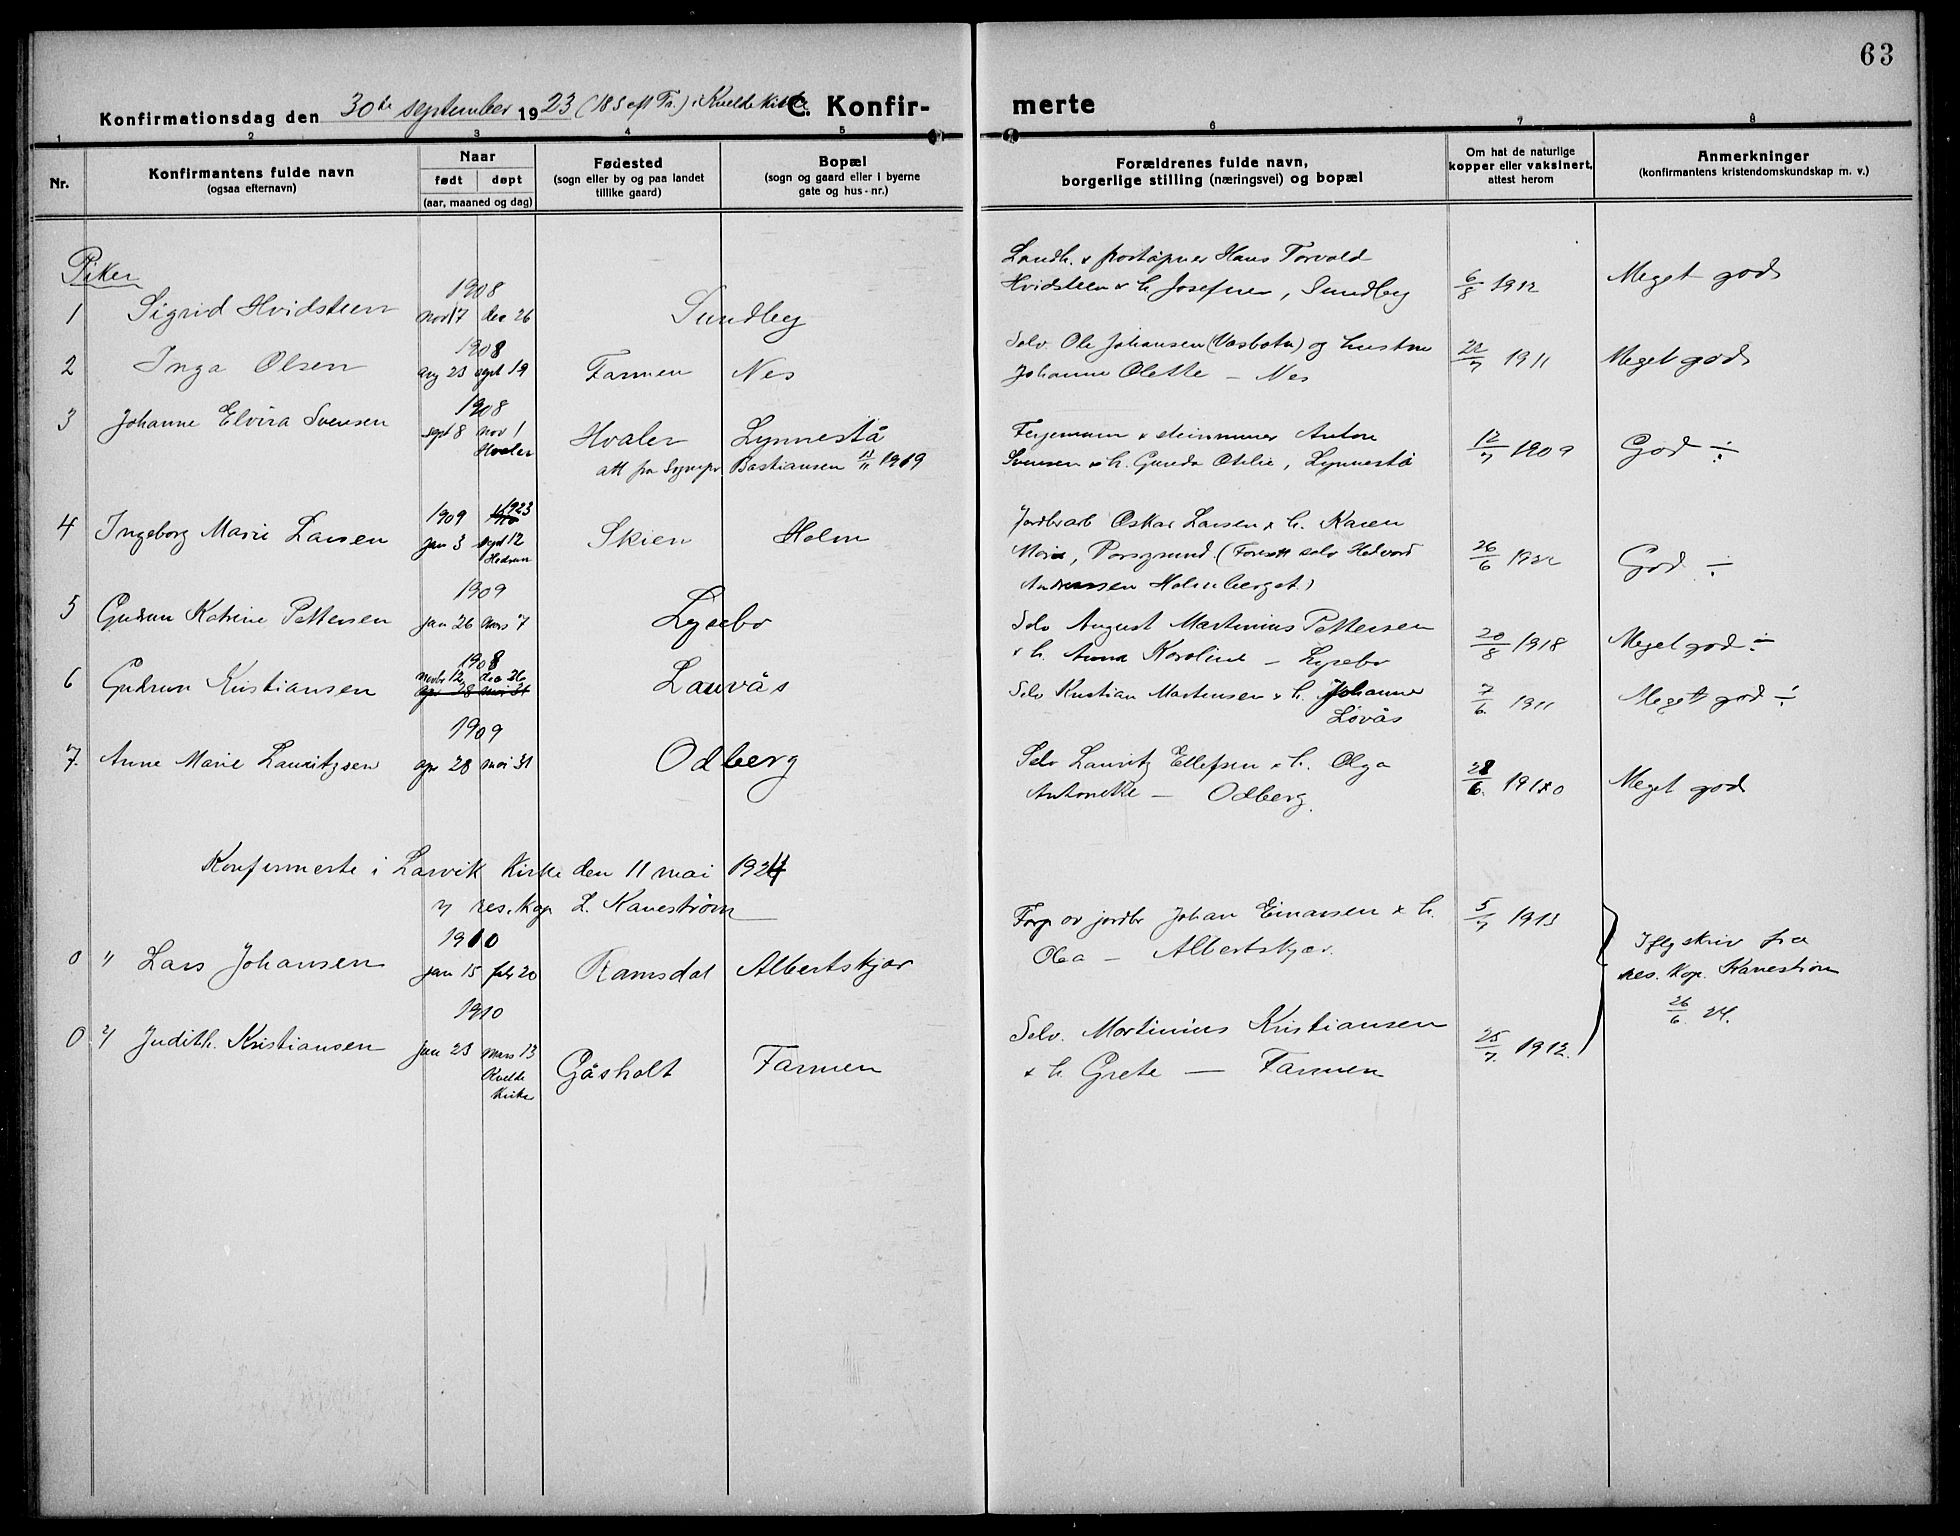 63
Konfirmationsdag den 30te september 1923 (18 S eft Tr.) i Kvelde kirke C. Konfir- merte
1 2 3 4 5 6 7 8
Nr.
Konfirmantens fulde navn
(ogsaa efternavn)
Naar
født døpt
(aar, maaned og dag)
Fødested
(sogn eller by og paa landet
tillike gaard)
Bopæl
(sogn og gaard eller i byerne
gate og hus-nr.)
Forældrenes fulde navn,
borgerlige stilling (næringsvei) og bopæl
Om hat de naturlige
kopper eller vaksinert,
attest herom
Anmerkninger
(konfirmantens kristendomskundskap m. v.)
Piker
1908
1 Sigrid Hvidsteen nov 17 des 26 Sundby
Landh. & poståpner Hans Torvald
Hvidsteen & h. Josefine, Sundby 6/8 1912 Meget god
1908
2 Inga Olsen aug 23 sept 19 Farmen Nes
Selv. Ole Johansen (Vasbotn) og hustru
Johanne Olette — Nes 22/7 1911 Meget god
1908
3 Johanne Elvira Svensen sept 8 nov 1 Hvaler Lynnestå
Hvaler att fra Sognepr. Bastiansen 13/11 1919
Fergemann & steinminer Anton
Svensen & h. Gunda Otilie, Lynnestå 12/7 1909 God ÷
1909 1923
4 Ingeborg Marie Larsen jan 3 sept 12 Skien Holm
Hedrum
Jordbrarb Oskar Larsen & h. Karen
Marie, Porsgrund. (Foresatt selv Hedvard
Andreassen Holmberget.) 26/6 1922 God ÷
1909
5 Gudrun Katrine Pettersen jan 26 mars 7 Lysebo
Selv August Martinius Pettersen
& h. Anna Karoline — Lysebo 20/8 1918 Meget god ÷
1908
novbr 12 des 26
6 Gudrun Kristiansen apr 28 mai 31 Lauvås
Selv Kristian Martinsen & h. Johanne
Løvås 7/6. 1911 Meget god ÷
1909
7. Anne Marie Lauritzsen apr 28 mai 31 Odberg
Selv Lauritz Ellefsen & h. Olga
Antonette — Odberg. 28/6. 1910 Meget god
Konfirmerte i Larvik kirke den 11 mai 1924
v/ res. kap L. Kanestrøm
1910
0 " Lars Johansen jan 15 febr 20 Ramsdal Albertskjær
Forp av jordbr Johan Einarsen & h.
Olea — Albertskjær. 5/7 1913
Iflg skriv fra
res. kap. Kanestrøm
26/6. 24.
1910
0 " Judith Kristiansen jan 23 mars 13 Gåsholt Farmen
Kvelde
kirke
Selv. Martinius Kristiansen
& h Grete — Farmen 25/7. 1912.